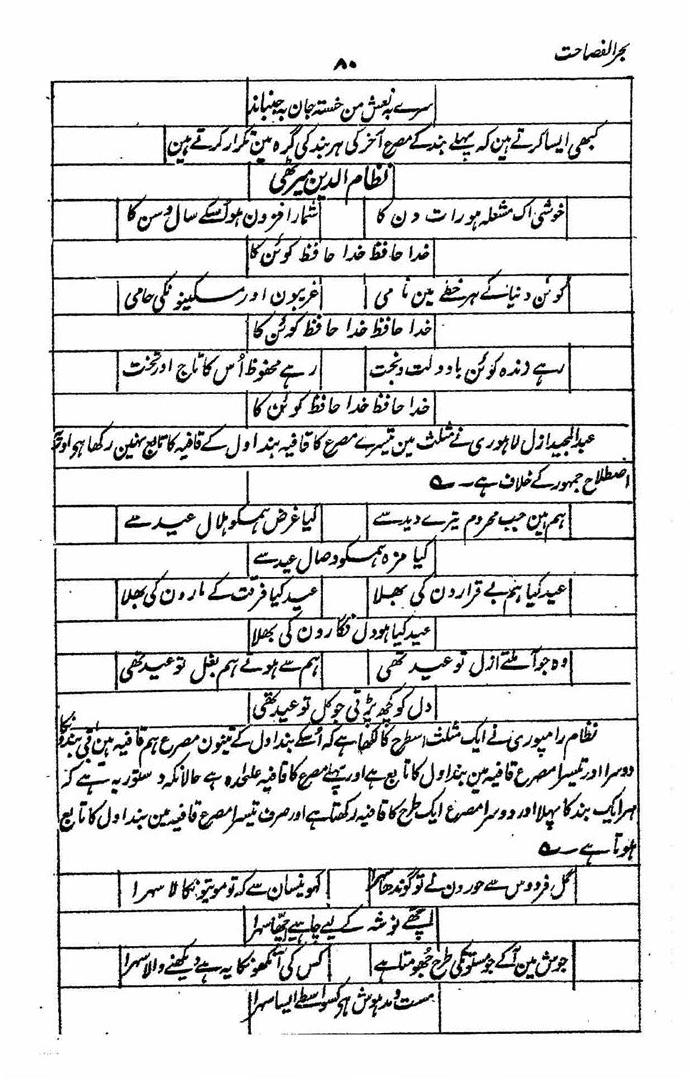 بحر الفصاحت
۸۰
سرے بہ نعش من خستہ جان بہ جنباند
کبھی ایسا کرتے ہین کہ پہلے بند کے مصرع آخر کی ہر بند کی گرہ مین تکرار کرتے ہین
نظام الدین میرٹھی
خوشی اک مشغلہ ہو رات دن کا شمار افزون ہو اُسکے سال و سن کا
خدا حافظ خدا حافظ کوئن کا
کوئن دنیا کے ہر خطے مین نامی غریبون اور مسکینونکی حامی
خدا حافظ خدا حافظ کوئن کا
رہے زندہ کوئن با دولت و بخت رہے محفوظ اُس کا تاج اور تخت
خدا حافظ خدا حافظ کوئن کا
عبد المجید ازل لاہوری نے مثلث مین تیسرے مصرع کا قافیہ بند اول کے قافیہ کا تابع نہین رکھا ہی اور یہ
اصطلاح جمہور کے خلاف ہے۔
ہم ہین جب محروم تیرے دید سے کیا غرض ہمکو ہلال عید سے
کیا مزہ ہمکو وصال عید سے
عید کیا ہم بے قرارون کی بھلا عید کیا فرقت کے مارون کی بھلا
عید کیا ہو دل فگارون کی بھلا
وہ جو آملتے ازل تو عید تھی ہم سے ہوتے ہم بغل تو عید تھی
دل کو کچھ پڑتی جو کل تو عید تھی
نظام رامپوری نے ایک مثلث اسطرح کا لکھا ہے کہ اُسکے بند اول کے تینون مصرع ہم قافیہ ہین باقی بندونکا
دوسرا اور تیسرا مصرع قافیہ مین بند اول کا تابع ہے اور پہلے مصرع کا قافیہ علٰحدہ ہے حالانکہ دستور یہ ہے کہ
ہر ایک بند کا پہلا اور دوسرا مصرع ایک طرح کا قافیہ رکھتا ہے اور صرف تیسرا مصرع قافیہ مین بند اول کا تابع
ہوتا ہے۔
گل فردوس سے حورون نے تو گوندھا سہرا کہو نیسان سے کہ تو موتیونکا لا سہرا
اچھے نوشہ کے لیے چاہیے اچھا سہرا
جوش مین آکے جو مستونکی طرح جھومتا ہے کس کی آنکھونکا یہ ہے دیکھنے والا سہرا
مست و مدہوش ہو کسواسطے ایسا سہرا